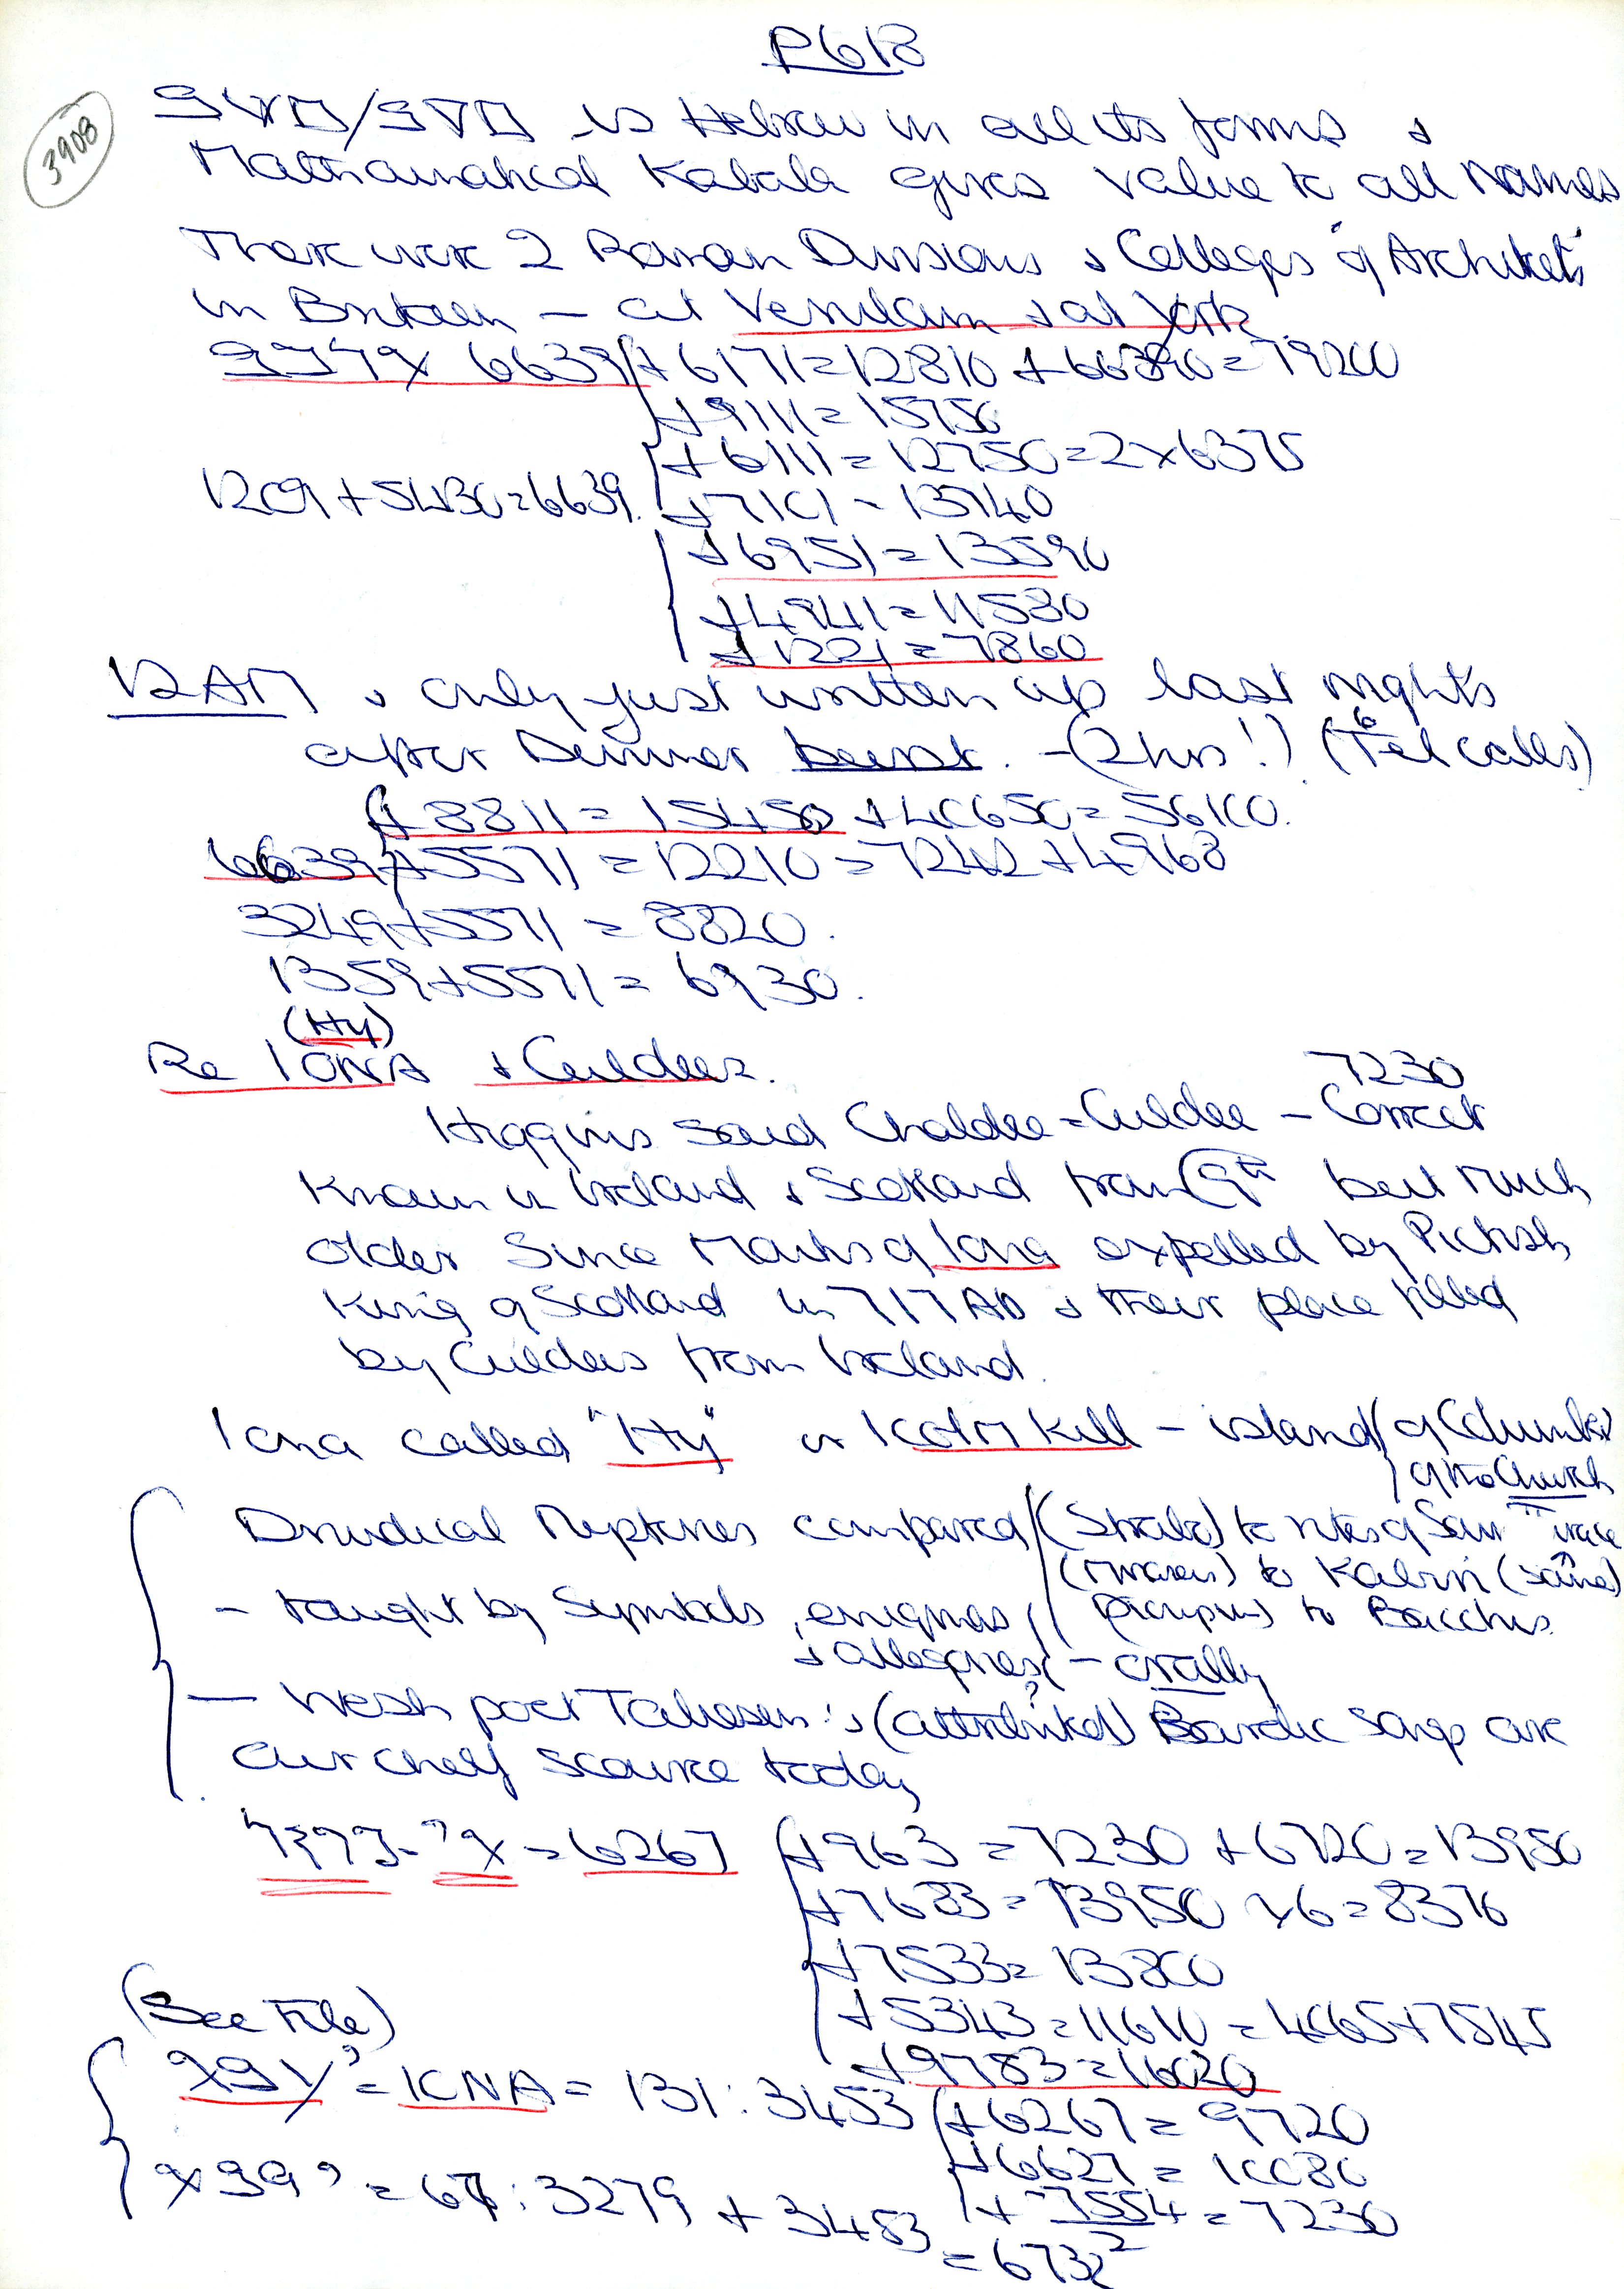 P618
3908
is Hebrew in all its forms &
Mathematical Kabala gives value to all Names
There were 2 Roman Divisions & Colleges "of Architects"
in Britain — at Verulam & at York
6639 + 6171 = 12810 + 66390 = 79200
+ 9111 = 15750
+ 6111 = 12750 = 2 x 6375
1209 + 5430 = 6639. + 7101 = 13740
+ 6951 = 13590
+ 4941 = 11580
+ 1221 = 7860
12 AM & only just written up last nights
after Dinner burst. - (2 hrs!) (6 Tel calls)
+ 8811 = 15450 + 40650 = 56100.
6639 + 5571 = 12210 = 7242 + 4968
3249 + 5571 = 8820.
1359 + 5571 = 6930.
(Hy)
Re IONA & Culdees.
7230
Higgins said Chaldee = Culdee - Correct
Known in Ireland & Scotland from 9th but much
older since Monks of Iona expelled by Pictish
King of Scotland in 717 AD & their place filled
by Culdees from Ireland.
Iona called "Hy" or Icolmkill - island of Columba
of the Church
Druidical Mysteries compared (Strabo) to rites of Samothrace
to Kabiri (same)
- taught by Symbols, enigmas, to Bacchus.
& allegories - orally
— Welsh poet Taliesen's (attributed?) Bardic songs are
our chief source today
= 6267 + 963 = 7230 + 6720 = 13950
+ 7683 = 13950 x 6 = 8370
+ 7533 = 13800
+ 5343 = 11610 = 4065 + 7545
(See File)
+ 9783 = 16020
= IONA = 131 : 3453 + 6267 = 9720
+ 6627 = 10080
= 67 : 3279 + 3453 + 7554 = 7230
= 6732 2